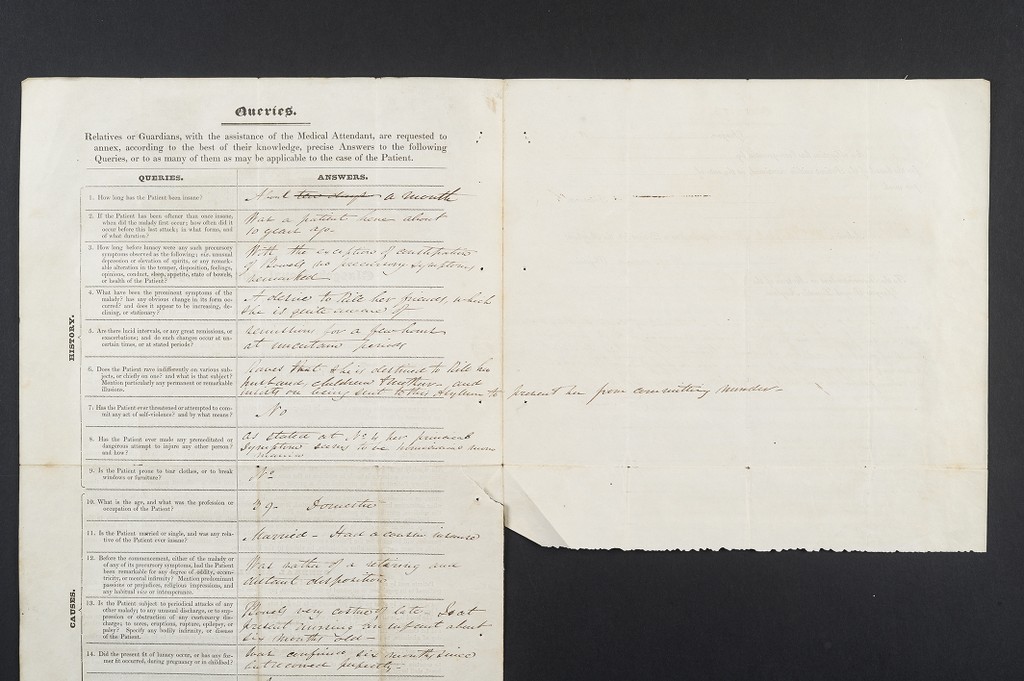 Queries.
Relatives or Guardians, with the assistance of the Medical Attendant, are requested to
annex, according to the best of their knowledge, precise Answers to the following
Queries, or to as many of them as may be applicable to the case of the Patient.
QUERIES. ANSWERS.
HISTORY.
1. How long has the Patient been insane?
About two days a month
2. If the Patient has been oftener than once insane,
when did the malady first occur; how often did it
occur before this last attack; in what forms, and
of what duration?
Was a patient here about
10 years ago.
3. How long before lunacy were any such precursory
symptoms observed as the following; viz. unusual
depression or elevation of spirits, or any remark-
able alteration in the temper, disposition, feelings,
opinions, conduct, sleep, appetite, state of bowels,
or health of the Patient?
With the exception of constipation
of Bowels no precursory symptoms
remarked
4. What have been the prominent symptoms of the
malady? has any obvious change in its form oc-
curred? and does it appear to be increasing, de-
clining, or stationary?
A desire to kill her friends, which
she is quite aware of
5. Are there lucid intervals, or any great remissions, or
exacerbations; and do such changes occur at un-
certain times, or at stated periods?
remissions for a few hours
at uncertain periods
6. Does the Patient rave indifferently on various sub-
jects, or chiefly on one? and what is that subject?
Mention particularly any permanent or remarkable
illusions.
Raves that she is destined to kill her
husband, children & mother and
insists on being sent to this Asylum to prevent her from committing murder—
7. Has the Patient ever threatened or attempted to com-
mit any act of self-violence? and by what means?
No
8. Has the Patient ever made any premeditated or
dangerous attempt to injure any other person?
and how?
As stated at No 4 her prominent
symptom seems to be homicidal mono
mania
9. Is the Patient prone to tear clothes, or to break
windows or furniture?
No
CAUSES.
10. What is the age, and what was the profession or
occupation of the Patient?
39— Domestic
11. Is the Patient married or single, and was any rela-
tive of the Patient ever insane?
Married — Had a cousin insane
12. Before the commencement, either of the malady or
of any of its precursory symptoms, had the Patient
been remarkable for any degree of oddity, eccen-
tricity, or mental infirmity? Mention predominant
passions or prejudices, religious impressions, and
any habitual vice or intemperance.
Was rather of a retiring and
distant disposition
13. Is the Patient subject to periodical attacks of any
other malady; to any unusual discharge, or to sup-
pression or obstruction of any customary dis-
charge; to sores, eruptions, rupture, epilepsy, or
palsy? Specify any bodily infirmity, or disease
of the Patient.
Bowels very costive of late — Is at
present nursing an infant about
six months old—
14. Did the present fit of lunacy occur, or has any for-
mer fit occurred, during pregnancy or in childbed?
Was confined six months since
but recovered perfectly—